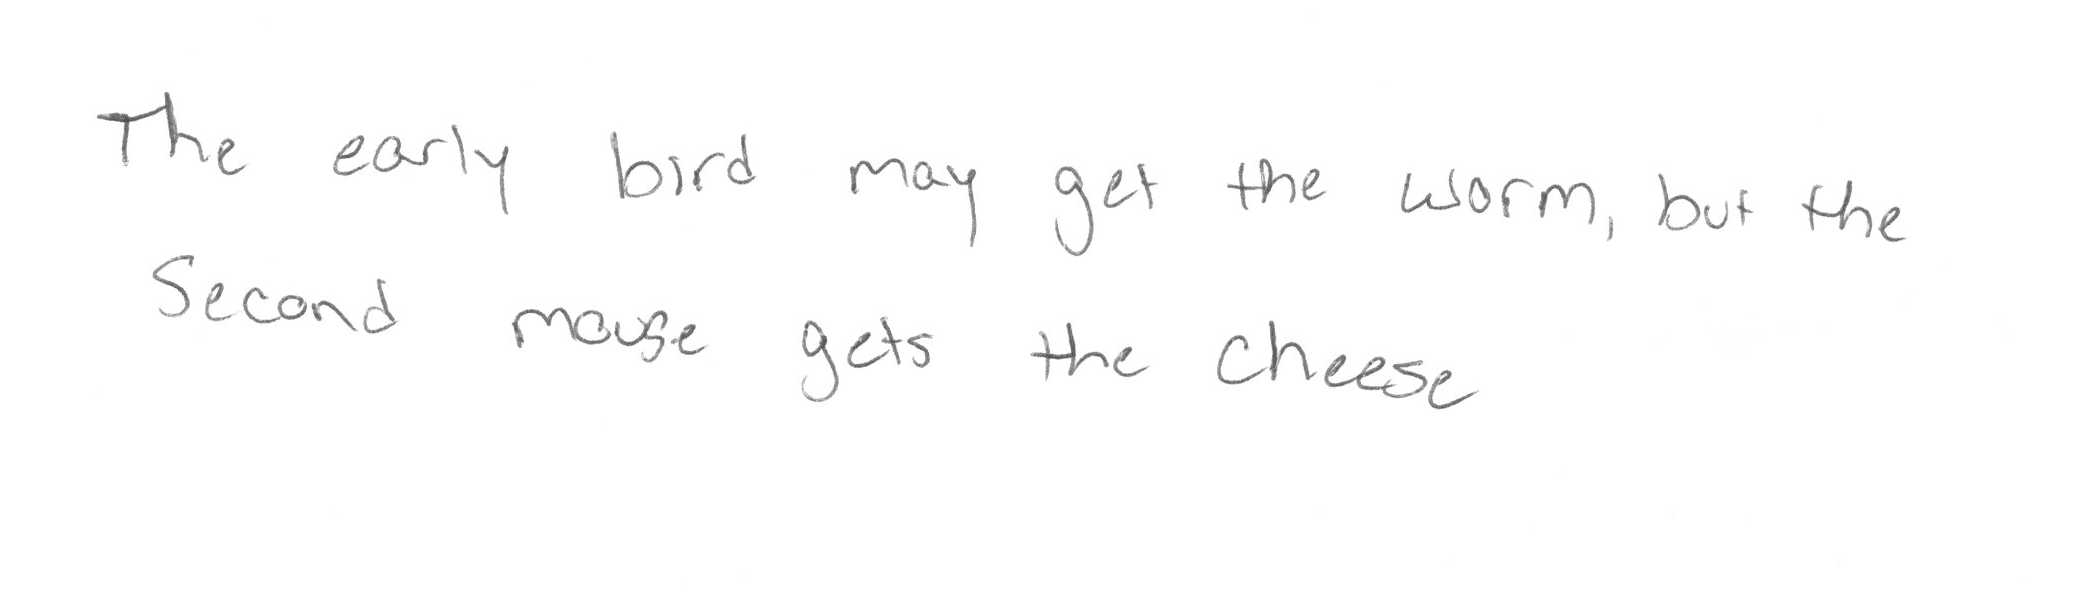 The early bird may get the worm, but the
Second mouse gets the cheese